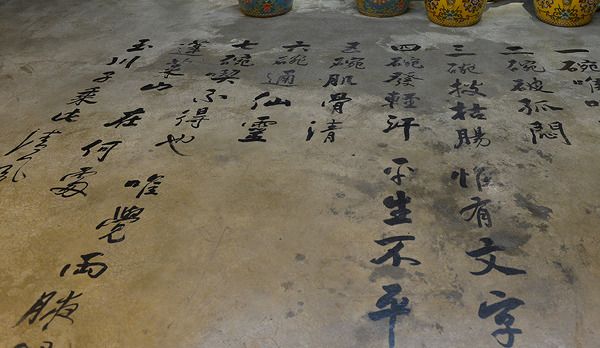 一碗喉
二碗破孤悶
三碗搜枯腸 惟有文字
四碗發輕汗 平生不平
五碗肌骨清
六碗通仙靈
七碗喫不得也 唯覺兩腋
蓬萊山 在何處
玉川子乘此清風